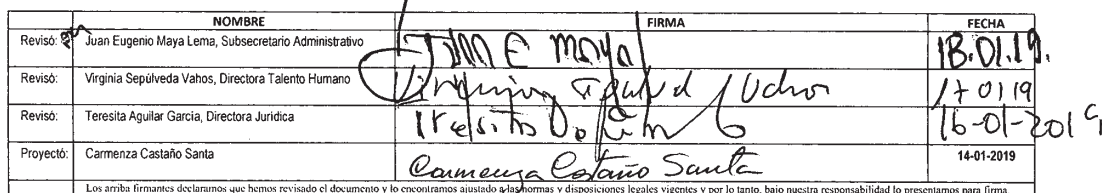 NOMBRE FIRMA FECHA
Revisó: Juan Eugenio Maya Lema, Subsecretario Administrativo Maya 18.01.19.
Revisó: Virginia Sepúlveda Vahos, Directora Talento Humano 17 01 19
Revisó: Teresita Aguilar García, Directora Jurídica 16-01-2019
Proyectó: Carmenza Castaño Santa Carmenza Castaño Santa 14-01-2019
Los arriba firmantes declaramos que hemos revisado el documento y lo encontramos ajustado a las normas y disposiciones legales vigentes y por lo tanto, bajo nuestra responsabilidad lo presentamos para firma